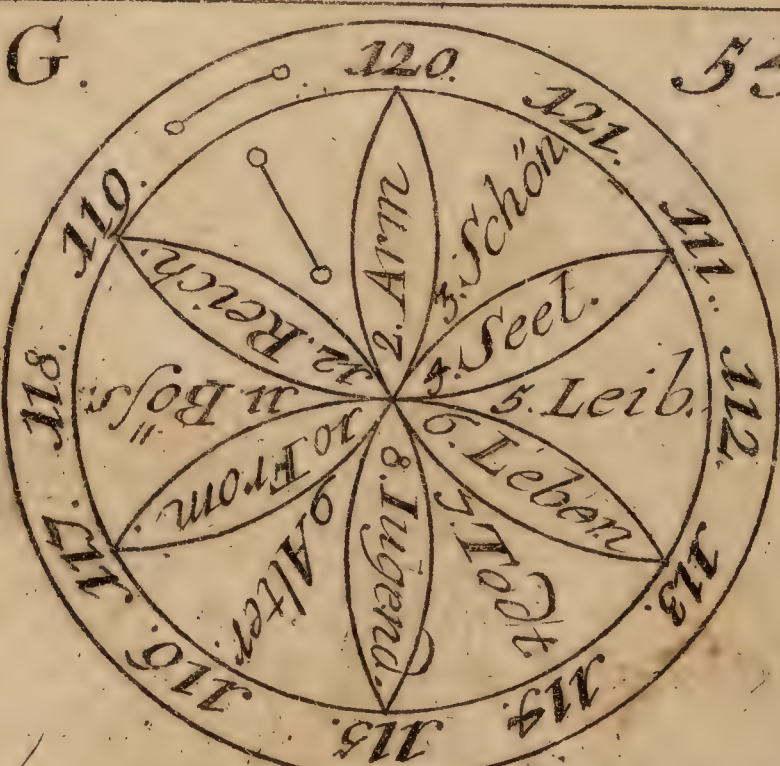 G.
120.
121.
111.
112.
113.
114.
115.
116.
117.
118.
110.
2. Arm
3. Schön
4. Seel.
5. Leib.
6. Leben
7. Todt.
8. Iugend.
9. Alter.
10 From.
11. Böss
12. Reich.